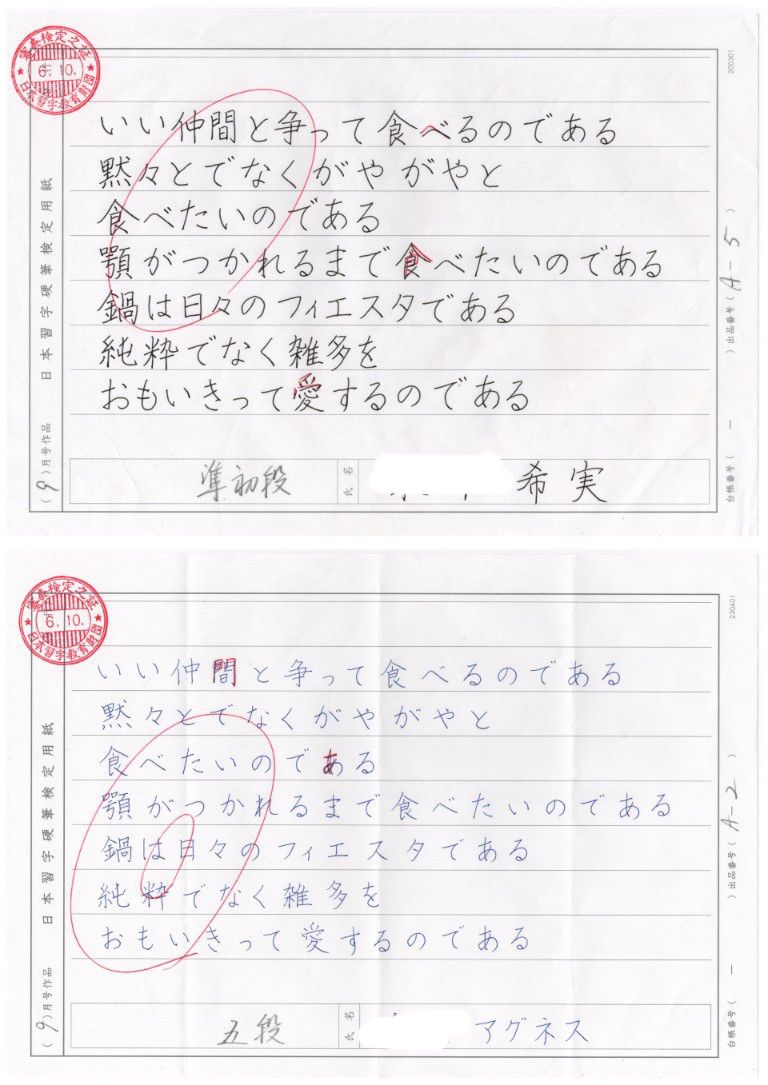 審査検定之証
6.10.
日本習字教育財団
200301
いい仲間と争って食べるのである
黙々とでなくがやがやと
食べたいのである
顎がつかれるまで食べたいのである
鍋は日々のフィエスタである
純粋でなく雑多を
おもいきって愛するのである
日本習字硬筆検定用紙
(9)月号作品
準初段
氏名
希実
出品番号(A-5)
台帳番号(一)
審査検定之証
6.10.
日本習字教育財団
230401
いい仲間と争って食べるのである
黙々とでなくがやがやと
食べたいのである
顎がつかれるまで食べたいのである
鍋は日々のフィエスタである
純粋でなく雑多を
おもいきって愛するのである
日本習字硬筆検定用紙
(9)月号作品
五段
氏名
アグネス
出品番号(A-2)
台帳番号(一)